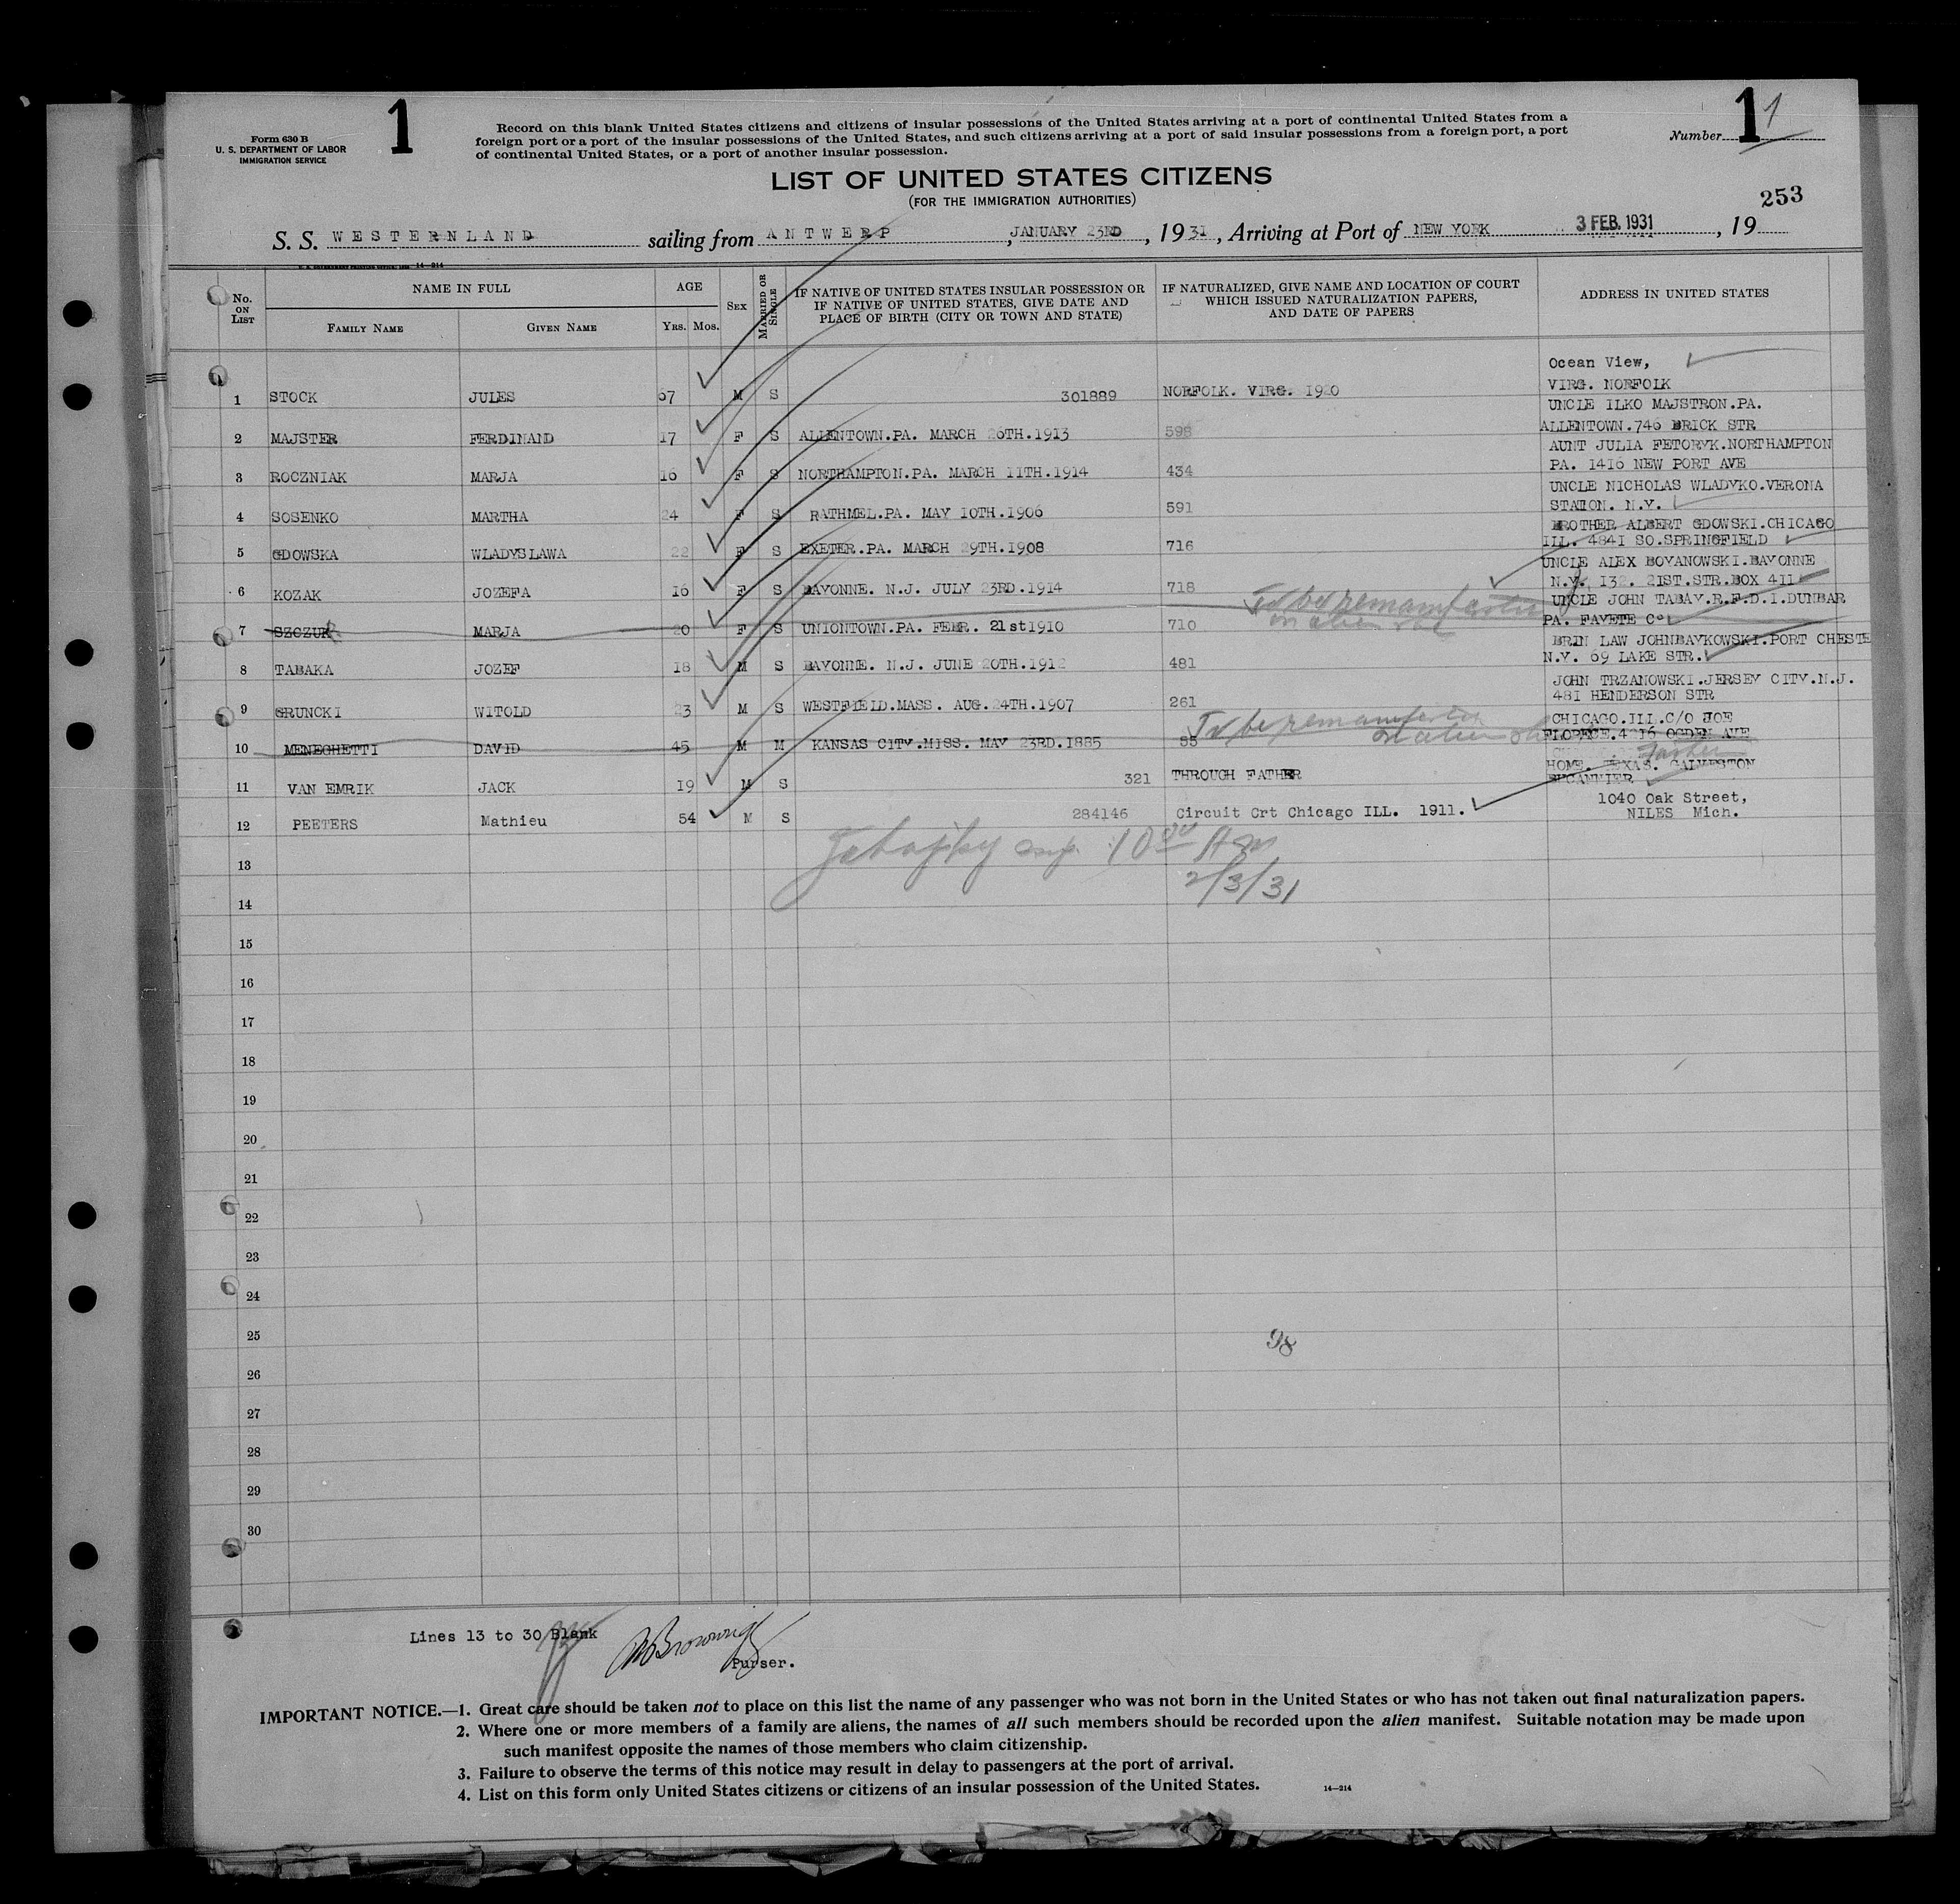 1
Form 630 B
U. S. DEPARTMENT OF LABOR
IMMIGRATION SERVICE
Record on this blank United States citizens and citizens of insular possessions of the United States arriving at a port of continental United States from a
foreign port or a port of the insular possessions of the United States, and such citizens arriving at a port of said insular possessions from a foreign port, a port
of continental United States, or a port of another insular possession.
Number 1 1
LIST OF UNITED STATES CITIZENS
(FOR THE IMMIGRATION AUTHORITIES)
253
S. S. WESTERNLAND sailing from ANTWERP, JANUARY 23RD, 1931, Arriving at Port of NEW YORK 3 FEB. 1931, 19
14—214
No. ON LIST NAME IN FULL FAMILY NAME GIVEN NAME AGE YRS. MOS. SEX MARRIED OR SINGLE IF NATIVE OF UNITED STATES INSULAR POSSESSION OR IF NATIVE OF UNITED STATES, GIVE DATE AND PLACE OF BIRTH (CITY OR TOWN AND STATE) IF NATURALIZED, GIVE NAME AND LOCATION OF COURT WHICH ISSUED NATURALIZATION PAPERS, AND DATE OF PAPERS ADDRESS IN UNITED STATES
Ocean View,
VIRG. NORFOLK
1 STOCK JULES 67 M S 301889 NORFOLK. VIRG. 1920
UNCLE ILKO MAJSTRON.PA.
2 MAJSTER FERDINAND 17 F S ALLENTOWN.PA. MARCH 26TH.1913 598 ALLENTOWN.746 BRICK STR
AUNT JULIA FETORYK.NORTHAMPTON
3 ROCZNIAK MARJA 16 F S NORTHAMPTON.PA. MARCH 11TH.1914 434 PA. 1416 NEW PORT AVE
UNCLE NICHOLAS WLADYKO.VERONA
4 SOSENKO MARTHA 24 F S RATHMEL.PA. MAY 10TH.1906 591 STATON. N.Y.
BROTHER ALBERT GDOWSKI.CHICAGO
5 GDOWSKA WLADYSLAWA 22 F S EXETER.PA. MARCH 29TH.1908 716 ILL. 4841 SO.SPRINGFIELD
UNCLE ALEX BOYANOWSKI.BAYONNE
6 KOZAK JOZEFA 16 F S BAYONNE. N.J. JULY 23RD.1914 718 N.Y. 132. 21ST.STR.BOX 411
To be remanifested
on alien
UNCLE JOHN TABAY.R.F.D.1.DUNBAR
7 SZCZUR MARJA 20 F S UNIONTOWN.PA. FEBR. 21st1910 710 PA. FAYETE Co
BRIN LAW JOHNBAYKOWSKI.PORT CHESTE
8 TABAKA JOZEF 18 M S BAYONNE. N.J. JUNE 20TH.1912 481 N.Y. 69 LAKE STR.
JOHN TRZANOWSKI.JERSEY CITY.N.J.
9 GRUNCKI WITOLD 23 M S WESTFIELD.MASS. AUG.24TH.1907 261 481 HENDERSON STR
To be remanifested
on alien
CHICAGO.ILL.C/O JOE
10 MENEGHETTI DAVID 45 M M KANSAS CITY.MISS. MAY 23RD.1885 55 OGDEN AVE
HOME. TEXAS. GALVESTON
11 VAN EMRIK JACK 19 M S 321 THROUGH FATHER
1040 Oak Street,
12 PEETERS Mathieu 54 M S 284146 Circuit Crt Chicago ILL. 1911. NILES Mich.
10 00 Am
2/3/31
13
14
15
16
17
18
19
20
21
22
23
24
25
98
26
27
28
29
30
Lines 13 to 30 Blank
Purser.
IMPORTANT NOTICE.—1. Great care should be taken not to place on this list the name of any passenger who was not born in the United States or who has not taken out final naturalization papers.
2. Where one or more members of a family are aliens, the names of all such members should be recorded upon the alien manifest. Suitable notation may be made upon
such manifest opposite the names of those members who claim citizenship.
3. Failure to observe the terms of this notice may result in delay to passengers at the port of arrival.
4. List on this form only United States citizens or citizens of an insular possession of the United States.
14—214